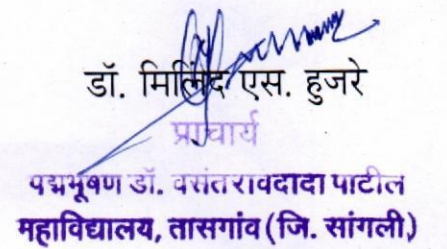 डॉ. मिलिंद एस. हुजरे
प्राचार्य
पद्मभूषण डॉ. वसंतरावदादा पाटील
महाविद्यालय, तासगांव (जि. सांगली)